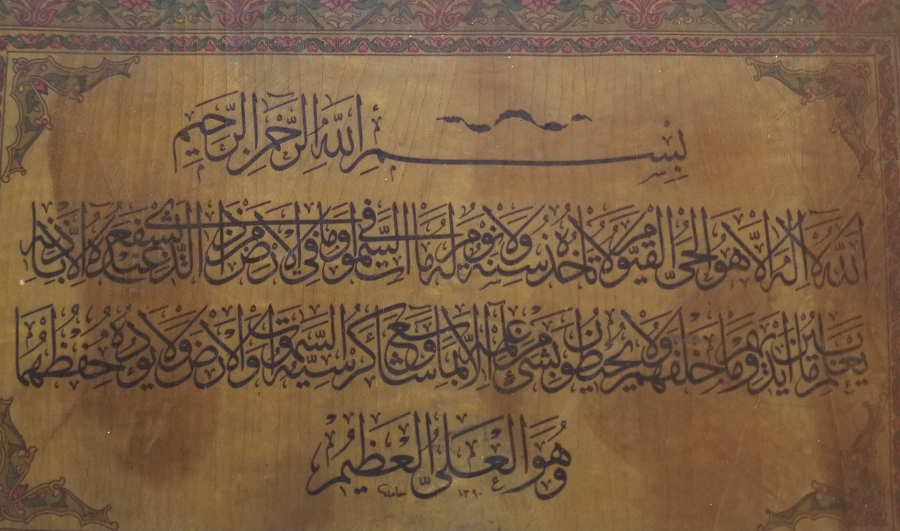 بِسْمِ اللهِ الرَّحْمٰنِ الرَّحِيمِ
اَللهُ لَا اِلٰهَ اِلَّا هُوَ الْحَيُّ الْقَيُّومُ لَا تَأْخُذُهُ سِنَةٌ وَلَا نَوْمٌ لَهُ مَا فِي السَّمٰوَاتِ وَمَا فِي الْاَرْضِ مَنْ ذَا الَّذِي يَشْفَعُ عِنْدَهُ اِلَّا بِاِذْنِهِ
يَعْلَمُ مَا بَيْنَ اَيْدِيهِمْ وَمَا خَلْفَهُمْ وَلَا يُحِيطُونَ بِشَيْءٍ مِنْ عِلْمِهِ اِلَّا بِمَا شَاءَ وَسِعَ كُرْسِيُّهُ السَّمٰوَاتِ وَالْاَرْضَ وَلَا يَؤُدُهُ حِفْظُهُمَا
وَهُوَ الْعَلِيُّ الْعَظِيمُ
حامد ١٣٩٠